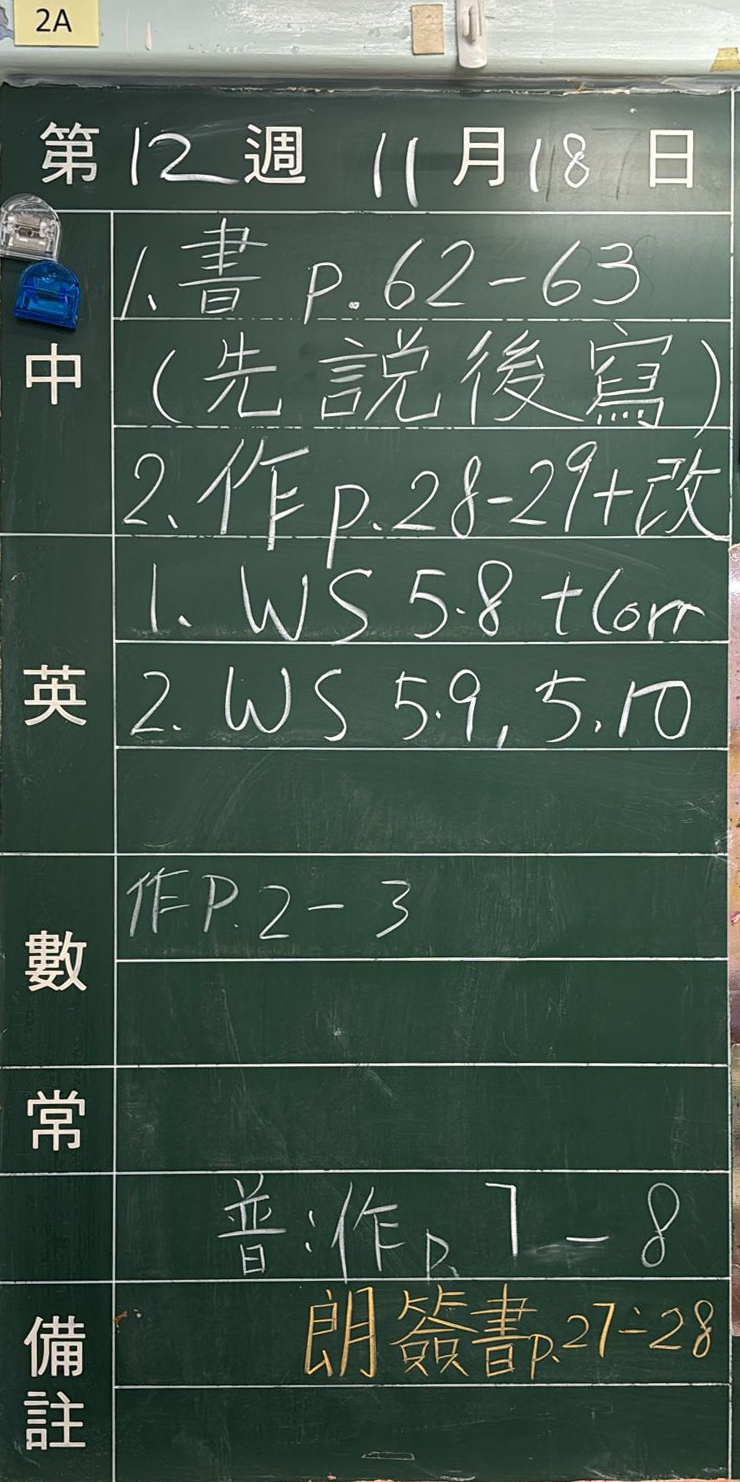 2A
第12週 11月18日
中
1.書 p.62-63
(先説後寫)
2.作p.28-29+改
英
1. WS 5.8 +Corr
2. WS 5.9, 5.10
數
作P.2-3
常
普:作p.7-8
備註
朗簽書p.27-28